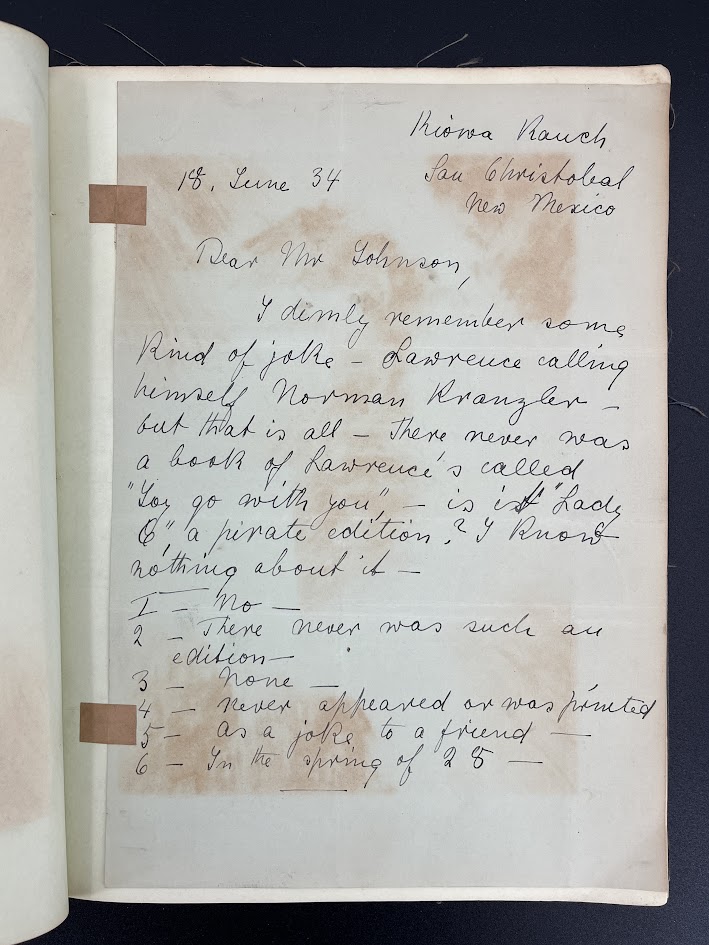 Kiowa Ranch
18. June 34
San Christobal
New Mexico
Dear Mr Johnson,
I dimly remember some
kind of joke – Lawrence calling
himself Norman Kranzler –
but that is all – There never was
a book of Lawrence's called
"Joy go with you", – is it "Lady
C", a pirate edition,? I know
nothing about it –
I – No –
2 – There never was such an
edition –
3 – None –
4 – never appeared or was printed
5 – As a joke to a friend –
6 – In the spring of 28 –